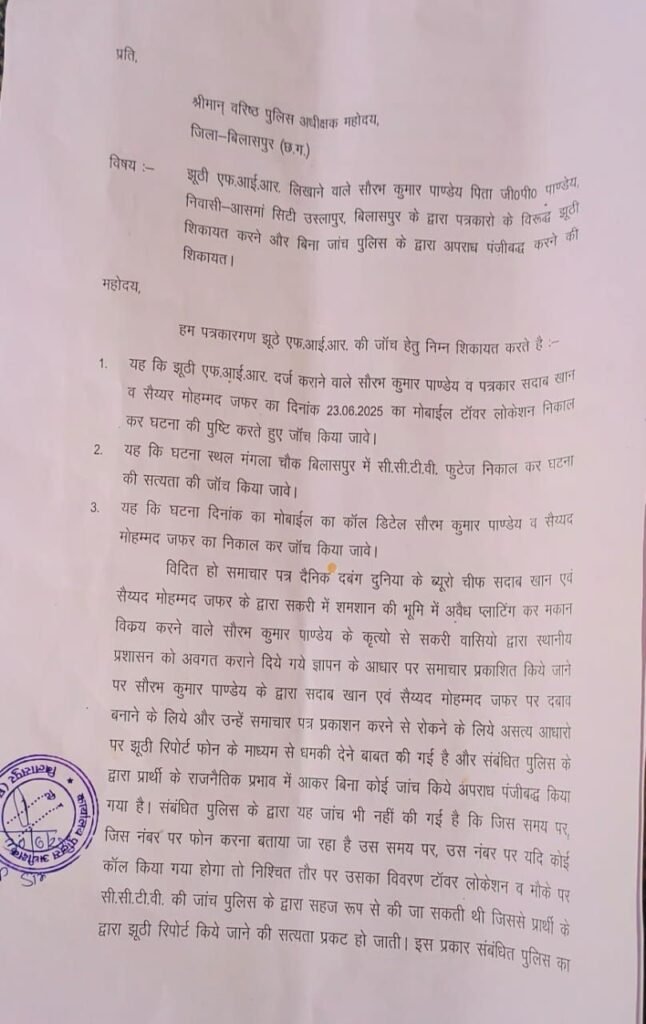 प्रति,
श्रीमान् वरिष्ठ पुलिस अधीक्षक महोदय,
जिला–बिलासपुर (छ.ग.)
विषय :– झूठी एफ.आई.आर. लिखाने वाले सौरभ कुमार पाण्डेय पिता जी0पी0 पाण्डेय,
निवासी–आसमां सिटी उस्लापुर, बिलासपुर के द्वारा पत्रकारो के विरूद्ध झूठी
शिकायत करने और बिना जांच पुलिस के द्वारा अपराध पंजीबद्ध करने की
शिकायत।
महोदय,
हम पत्रकारगण झूठे एफ.आई.आर. की जॉच हेतु निम्न शिकायत करते है :–
1. यह कि झूठी एफ.आई.आर. दर्ज कराने वाले सौरभ कुमार पाण्डेय व पत्रकार सदाब खान
व सैय्यर मोहम्मद जफर का दिनांक 23.06.2025 का मोबाईल टॉवर लोकेशन निकाल
कर घटना की पुष्टि करते हुए जॉच किया जावे।
2. यह कि घटना स्थल मंगला चौक बिलासपुर में सी.सी.टी.वी. फुटेज निकाल कर घटना
की सत्यता की जॉच किया जावे।
3. यह कि घटना दिनांक का मोबाईल का कॉल डिटेल सौरभ कुमार पाण्डेय व सैय्यद
मोहम्मद जफर का निकाल कर जॉच किया जावे।
विदित हो समाचार पत्र दैनिक दबंग दुनिया के ब्यूरो चीफ सदाब खान एवं
सैय्यद मोहम्मद जफर के द्वारा सकरी में शमशान की भूमि में अवैध प्लाटिंग कर मकान
विक्रय करने वाले सौरभ कुमार पाण्डेय के कृत्यो से सकरी वासियो द्वारा स्थानीय
प्रशासन को अवगत कराने दिये गये ज्ञापन के आधार पर समाचार प्रकाशित किये जाने
पर सौरभ कुमार पाण्डेय के द्वारा सदाब खान एवं सैय्यद मोहम्मद जफर पर दबाव
बनाने के लिये और उन्हें समाचार पत्र प्रकाशन करने से रोकने के लिये असत्य आधारो
पर झूठी रिपोर्ट फोन के माध्यम से धमकी देने बाबत की गई है और संबंधित पुलिस के
द्वारा प्रार्थी के राजनैतिक प्रभाव में आकर बिना कोई जांच किये अपराध पंजीबद्ध किया
गया है। संबंधित पुलिस के द्वारा यह जांच भी नहीं की गई है कि जिस समय पर,
जिस नंबर पर फोन करना बताया जा रहा है उस समय पर, उस नंबर पर यदि कोई
कॉल किया गया होगा तो निश्चित तौर पर उसका विवरण टॉवर लोकेशन व मौके पर
सी.सी.टी.वी. की जांच पुलिस के द्वारा सहज रूप से की जा सकती थी जिससे प्रार्थी के
द्वारा झूठी रिपोर्ट किये जाने की सत्यता प्रकट हो जाती। इस प्रकार संबंधित पुलिस का
कार्यालय पुलिस अधीक्षक
बिलासपुर